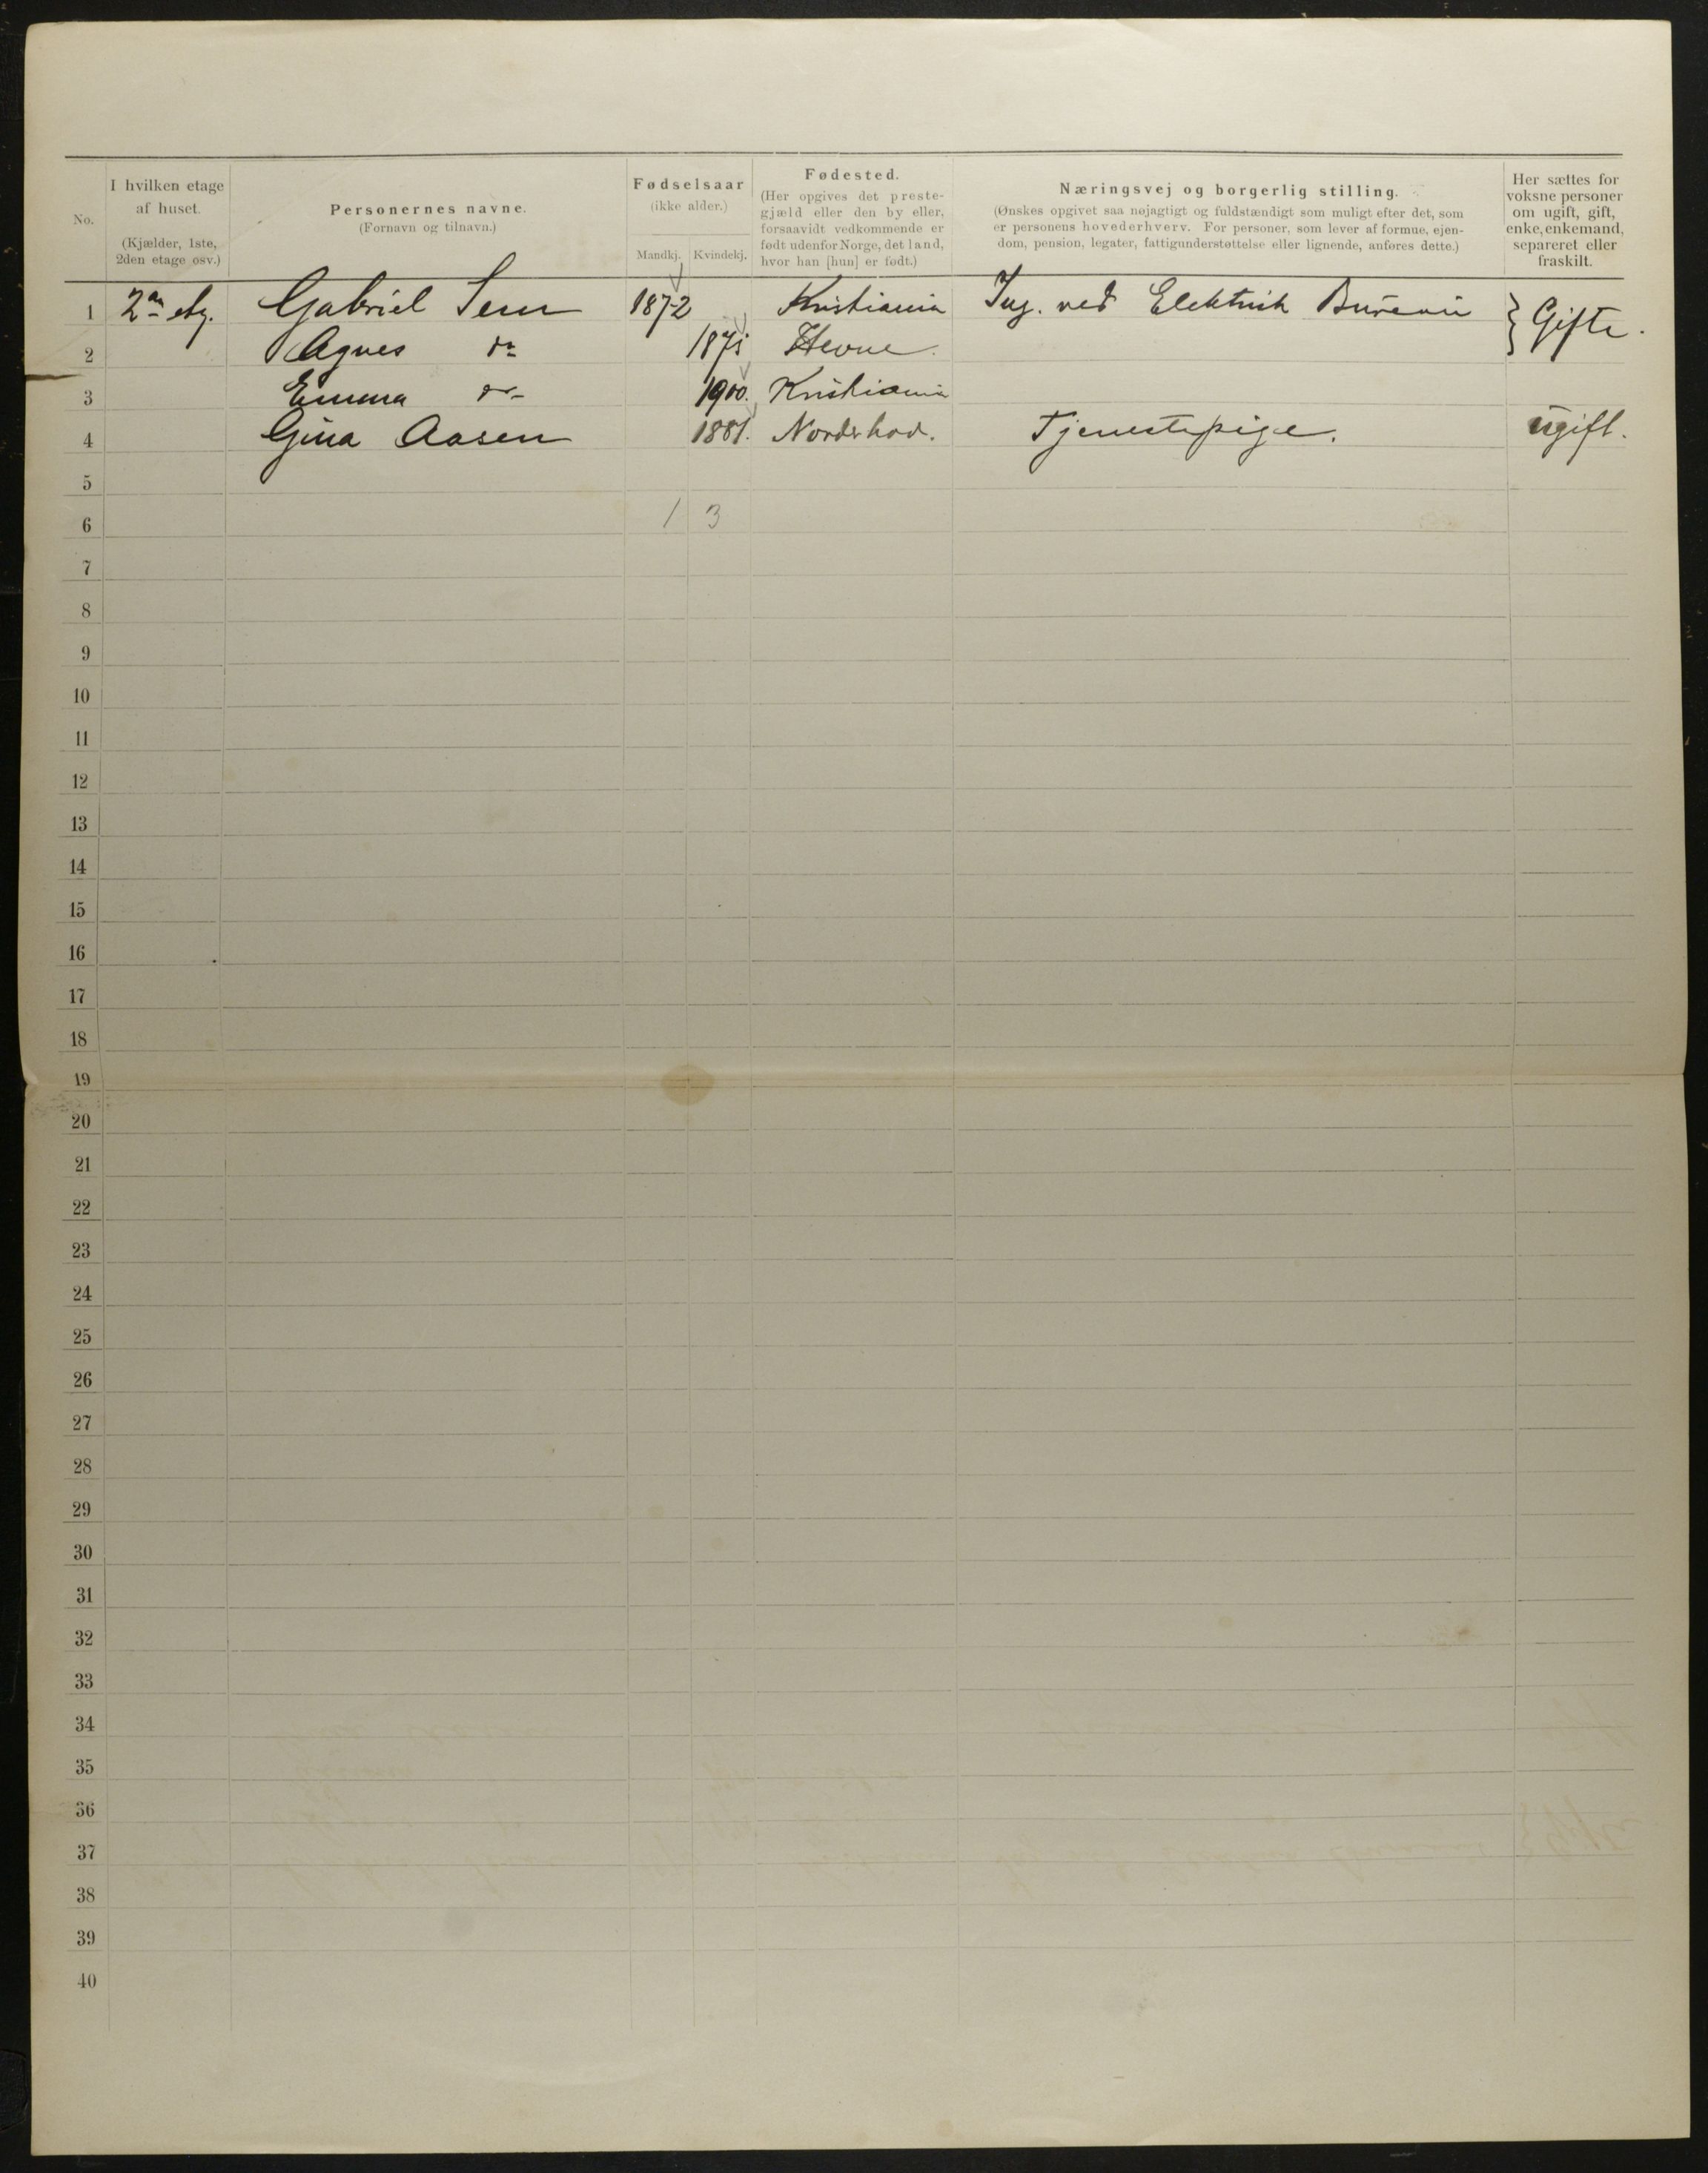 No.
I hvilken etage
af huset.
(Kjælder, 1ste,
2den etage osv.)
Personernes navne.
(Fornavn og tilnavn.)
Fødselsaar
(ikke alder.)
Mandkj. Kvindekj.
Fødested.
(Her opgives det preste-
gjæld eller den by eller,
forsaavidt vedkommende er
født udenfor Norge, det land,
hvor han [hun] er født.)
Næringsvej og borgerlig stilling.
(Ønskes opgivet saa nøjagtigt og fuldstændigt som muligt efter det, som
er personens hovederhverv. For personer, som lever af formue, ejen-
dom, pension, legater, fattigunderstøttelse eller lignende, anføres dette.)
Her sættes for
voksne personer
om ugift, gift,
enke, enkemand,
separeret eller
fraskilt.
1 2 etg. Gabriel Sem 1872 Kristiania Ing. ved Elektrisk Bureau } Gifte.
2 Agnes do 1875 Hevne.
3 Emma do 1900. Kristiania
4 Gina Aasen 1881. Norderhov. Tjenestepige. ugift.
5
6 1 3
7
8
9
10
11
12
13
14
15
16
17
18
19
20
21
22
23
24
25
26
27
28
29
30
31
32
33
34
35
36
37
38
39
40